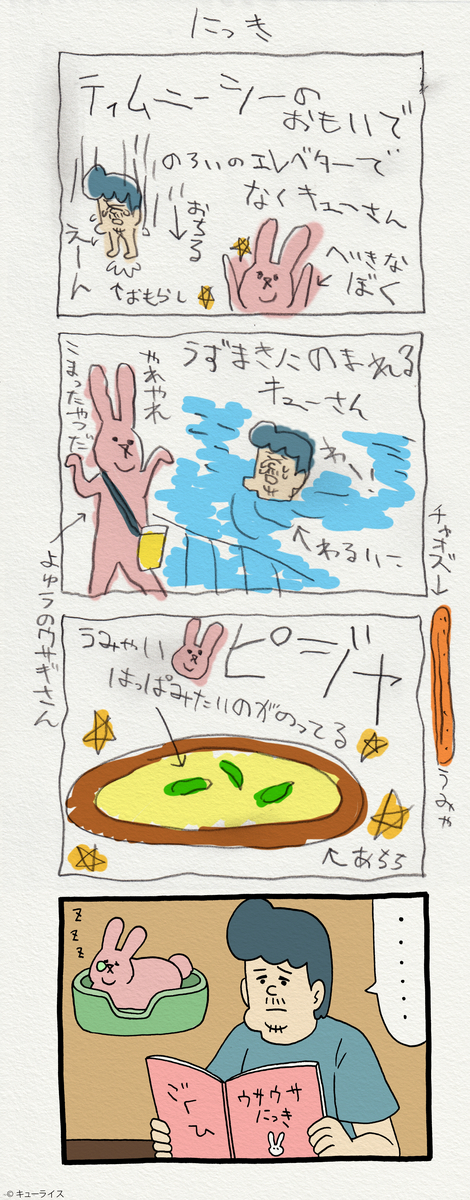 にっき
ティムニーシーの
おもいで
のろいのエレベターで
なくキューさん
おちる
えーん
↑おもらし
へきな
ぼく
うずまきにのまれる
キューさん
やれやれ
こまったやつだ
わい、
わるいこ
よゆうのウサギさん
チャギズー
うみゃ
うみゃい
ピージャ
はっぱみたいのがのってる
あちち
z
z
z
・・・・・・
ごくひ
ウサウサ
にっき
© キューライス